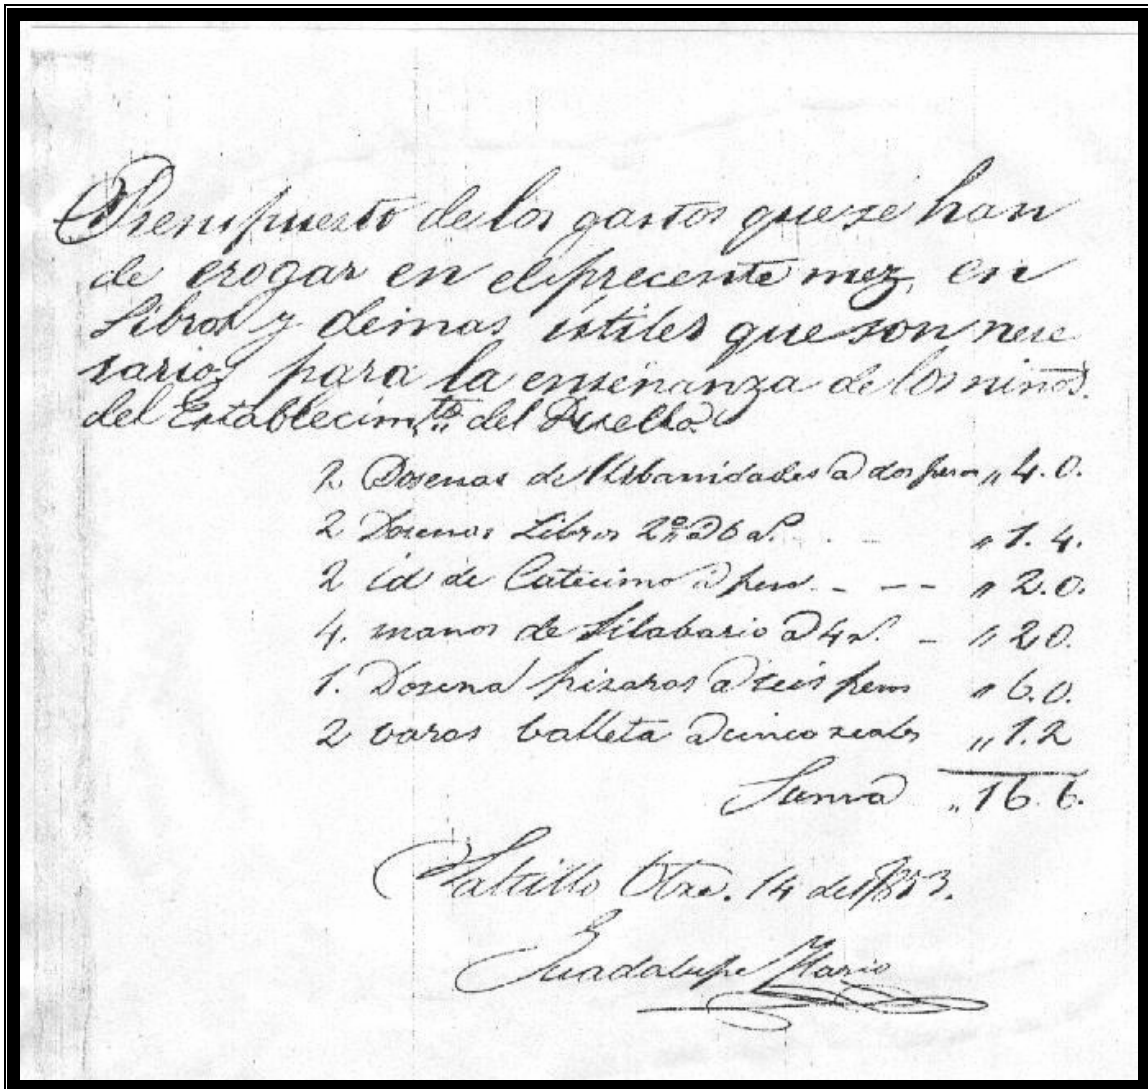 Presupuesto de los gastos que se han
de erogar en el precente mez, en
Libros y demas utiles que son nece
sarios para la enseñanza de los niños
del Establecimto. del
2 Dosenas de Urbanidades a dos pesos ,, 4.0.
2 Dosenas Libros 2º a 6 rs. ,, 1.4.
2 id de Catecimo a peso. - -- ,, 2.0.
4. manos de Silabario a 4 rs. - ,, 2 0.
1. Dosena pizaras a seis pesos ,, 6.0.
2 varas balleta a cinco reales ,, 1.2
Suma ,, 16.6.
Saltillo Obre. 14 de 1853.
Guadalupe